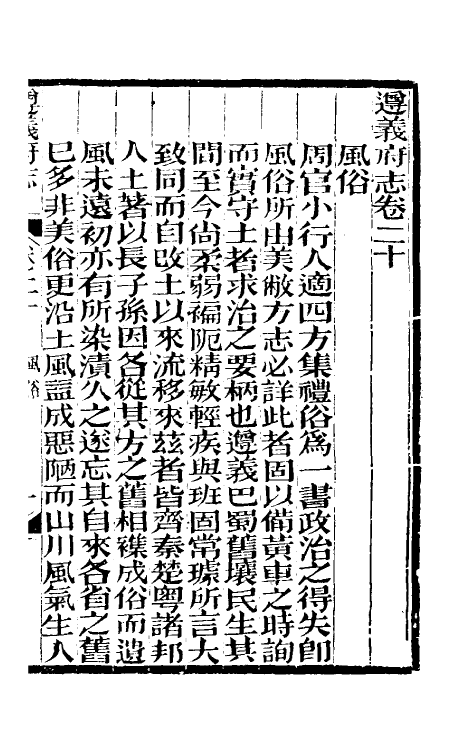 遵義府志卷二十
風俗
周官小行人適四方集禮俗爲一書政治之得失卽
風俗所由美敝方志必詳此者固以備黃車之時詢
而實守土者求治之要柄也遵義巴蜀舊壤民生其
間至今尚柔弱褊阨精敏輕疾與班固常璩所言大
致同而自改土以來流移來茲者皆齊秦楚粵諸邦
人土著以長子孫因各從其方之舊相襍成俗而遺
風未遠初亦有所染漬久之遂忘其自來各省之舊
已多非美俗更沿土風益成惡陋而山川風氣生人
遵義府志 卷之二十 風俗 一